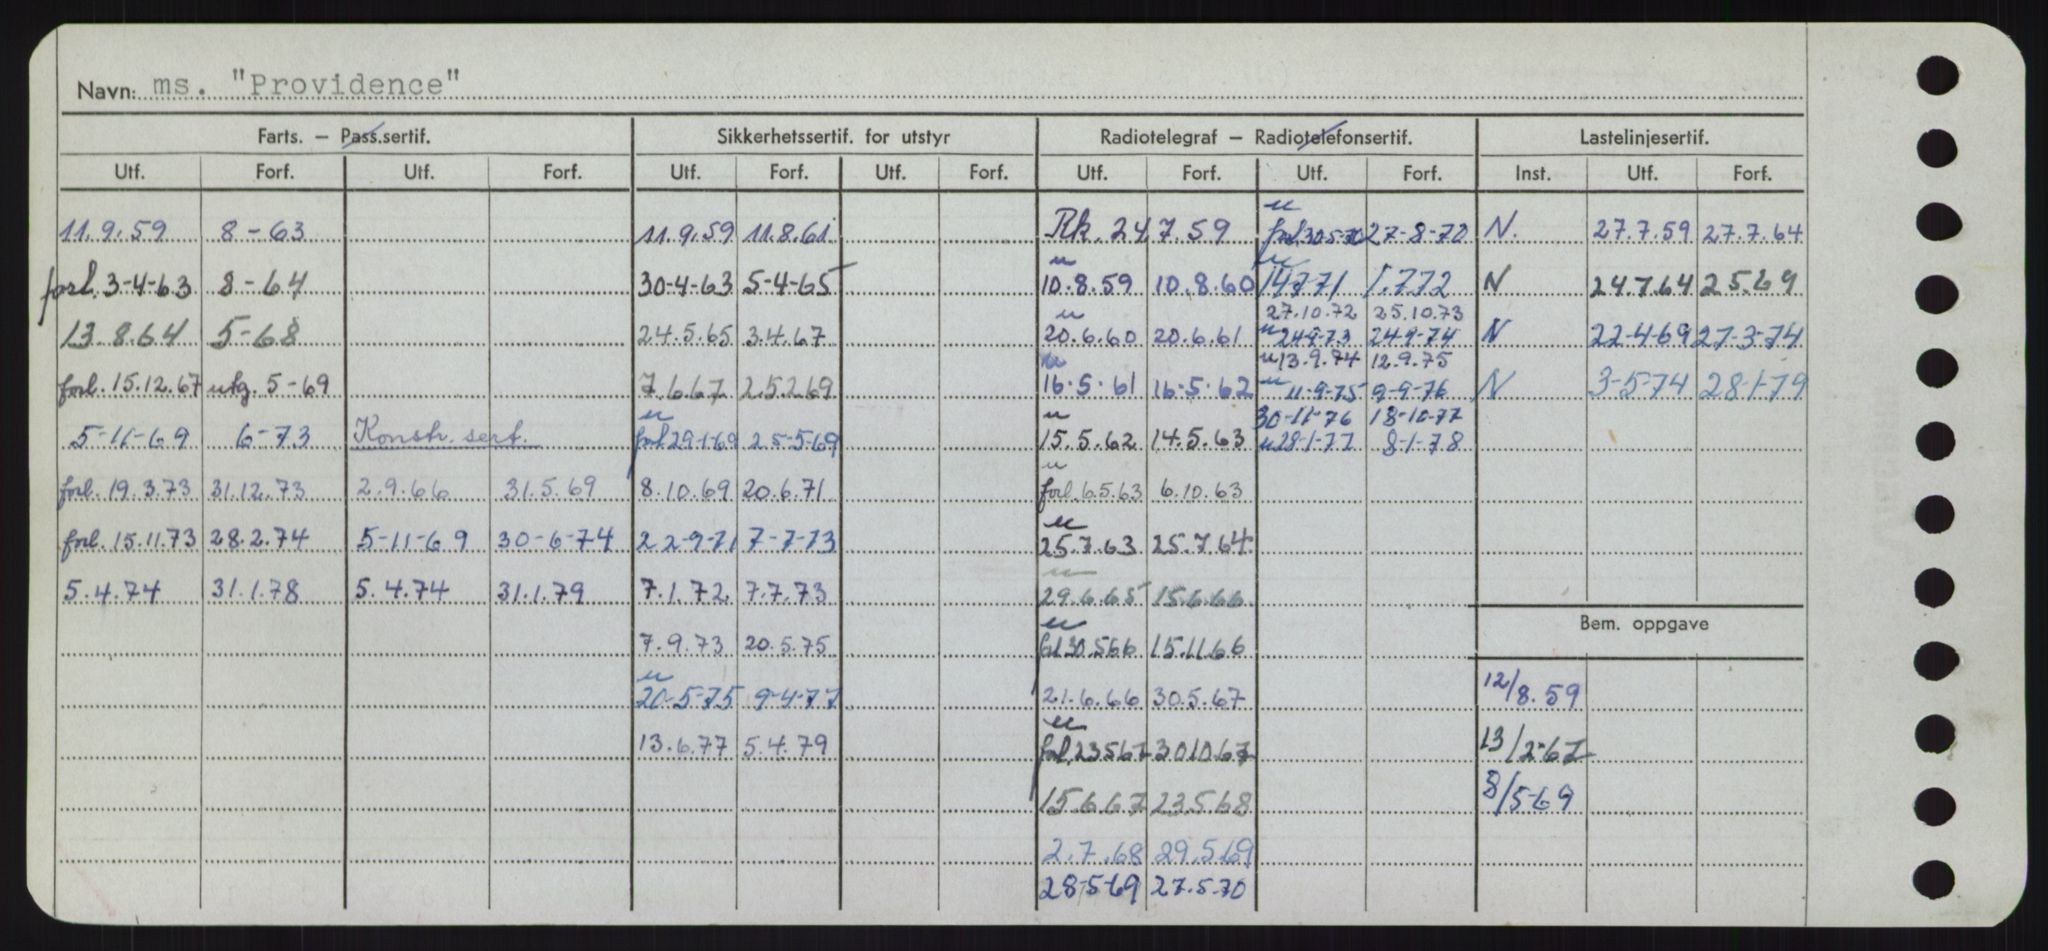 Navn: ms. "Providence"
Farts. – Pass.sertif. Sikkerhetssertif. for utstyr Radiotelegraf – Radiotelefonsertif. Lastelinjesertif.
Utf. Forf. Utf. Forf. Utf. Forf. Utf. Forf. Utf. Forf. Utf. Forf. Inst. Utf. Forf.
11.9.59 8-63 11.9.59 11.8.61 Rk. 24.7.59 u forl. 30-5-70 27-8-70 N. 27.7.59 27.7.64
forl. 3-4-63 8-64 30-4-63 5-4-65 u 10.8.59 10.8.60 u 14.7.71 1.7.72 N 24.7.64 25.69
27.10.72 25.10.73
13.8.64 5-68 24.5.65 3.4.67 u 20.6.60 20.6.61 u 24-9-73 24-9-74 N 22-4-69 27-3-74
u 13.9.74 12.9.75
forl. 15.12.67 utg. 5-69 7.6.67 25.2.69 u 16.5.61 16.5.62 u 11-9-75 9-9-76 N 3-5-74 28-1-79
30-11-76 18-10-77
5-11-69 6-73 Konstr. sert. u forl. 29-1-69 25-5-69 u 15.5.62 14.5.63 u 28-1-77 8-1-78
forl. 19.3.73 31.12.73 2.9.66 31.5.69 8.10.69 20.6.71 u forl. 6.5.63 6.10.63
forl. 15.11.73 28.2.74 5-11-69 30-6-74 22-9-71 7-7-73 u 25.7.63 25.7.64
5.4.74 31.1.78 5.4.74 31.1.79 7.1.72 7.7.73 u 29.6.65 15.6.66
Bem. oppgave
7.9.73 20.5.75 u forl 30.5.66 15.11.66
u 20-5-75 9-4-77 21.6.66 30.5.67 12/8.59
13.6.77 5.4.79 u forl. 23.5.67 30.10.67 13/2-67
15.6.67 23.5.68 8/5-69
2.7.68 29.5.69
28-5-69 27.5.70